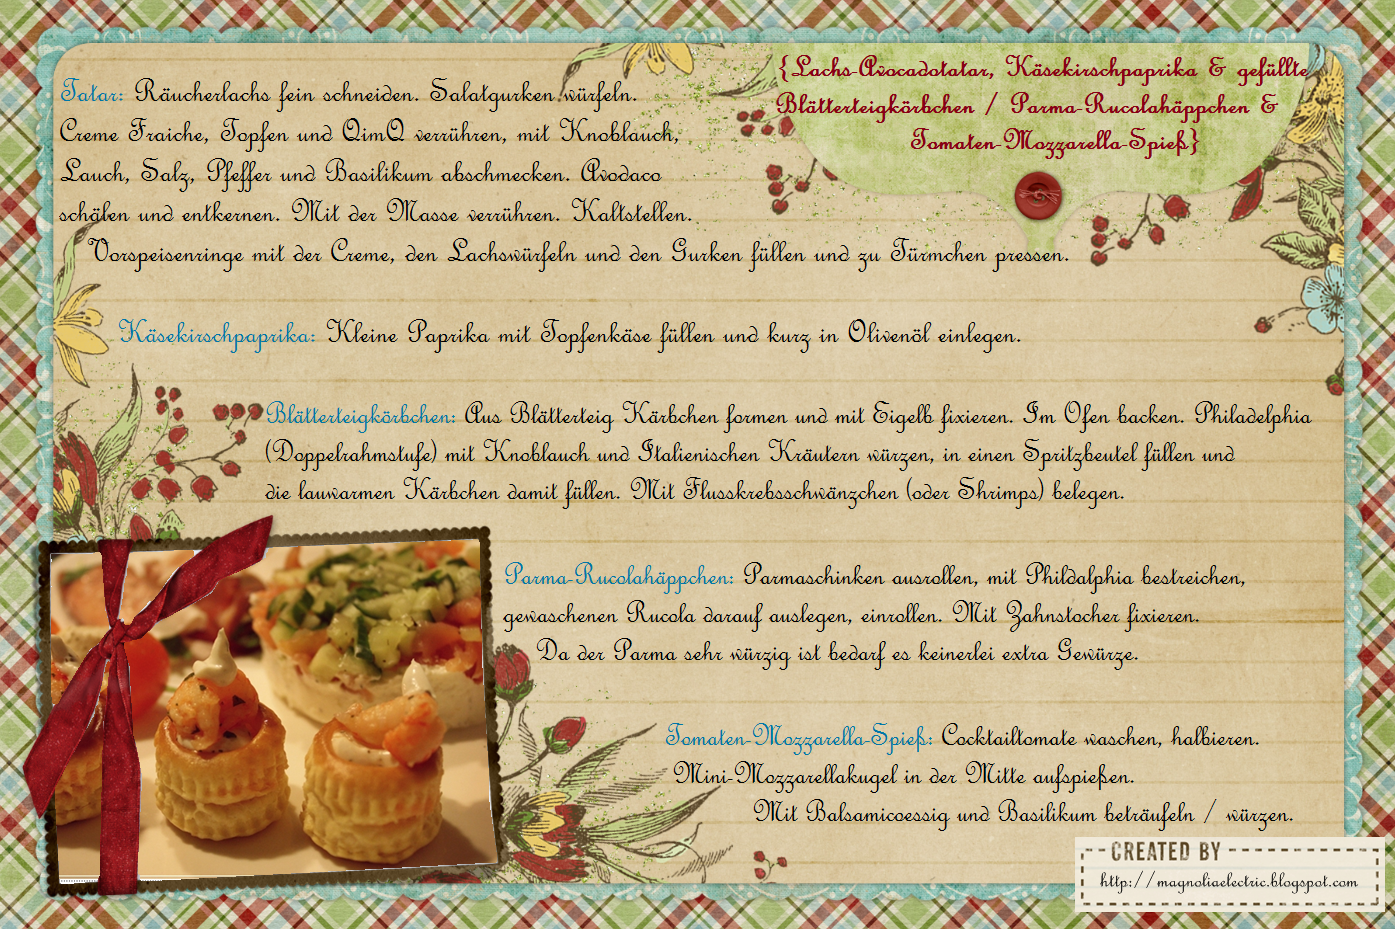 {Lachs-Avocadotatar, Käsekirschpaprika & gefüllte
Blätterteigkörbchen / Parma-Rucolahäppchen &
Tomaten-Mozzarella-Spieß}
Tatar: Räucherlachs fein schneiden. Salatgurken würfeln.
Creme Fraiche, Topfen und QimQ verrühren, mit Knoblauch,
Lauch, Salz, Pfeffer und Basilikum abschmecken. Avodaco
schälen und entkernen. Mit der Masse verrühren. Kaltstellen.
Vorspeisenringe mit der Creme, den Lachswürfeln und den Gurken füllen und zu Türmchen pressen.
Käsekirschpaprika: Kleine Paprika mit Topfenkäse füllen und kurz in Olivenöl einlegen.
Blätterteigkörbchen: Aus Blätterteig Kärbchen formen und mit Eigelb fixieren. Im Ofen backen. Philadelphia
(Doppelrahmstufe) mit Knoblauch und Italienischen Kräutern würzen, in einen Spritzbeutel füllen und
die lauwarmen Kärbchen damit füllen. Mit Flusskrebsschwänzchen (oder Shrimps) belegen.
Parma-Rucolahäppchen: Parmaschinken ausrollen, mit Phildalphia bestreichen,
gewaschenen Rucola darauf auslegen, einrollen. Mit Zahnstocher fixieren.
Da der Parma sehr würzig ist bedarf es keinerlei extra Gewürze.
Tomaten-Mozzarella-Spieß: Cocktailtomate waschen, halbieren.
Mini-Mozzarellakugel in der Mitte aufspießen.
Mit Balsamicoessig und Basilikum beträufeln / würzen.
CREATED BY
http://magnoliaelectric.blogspot.com